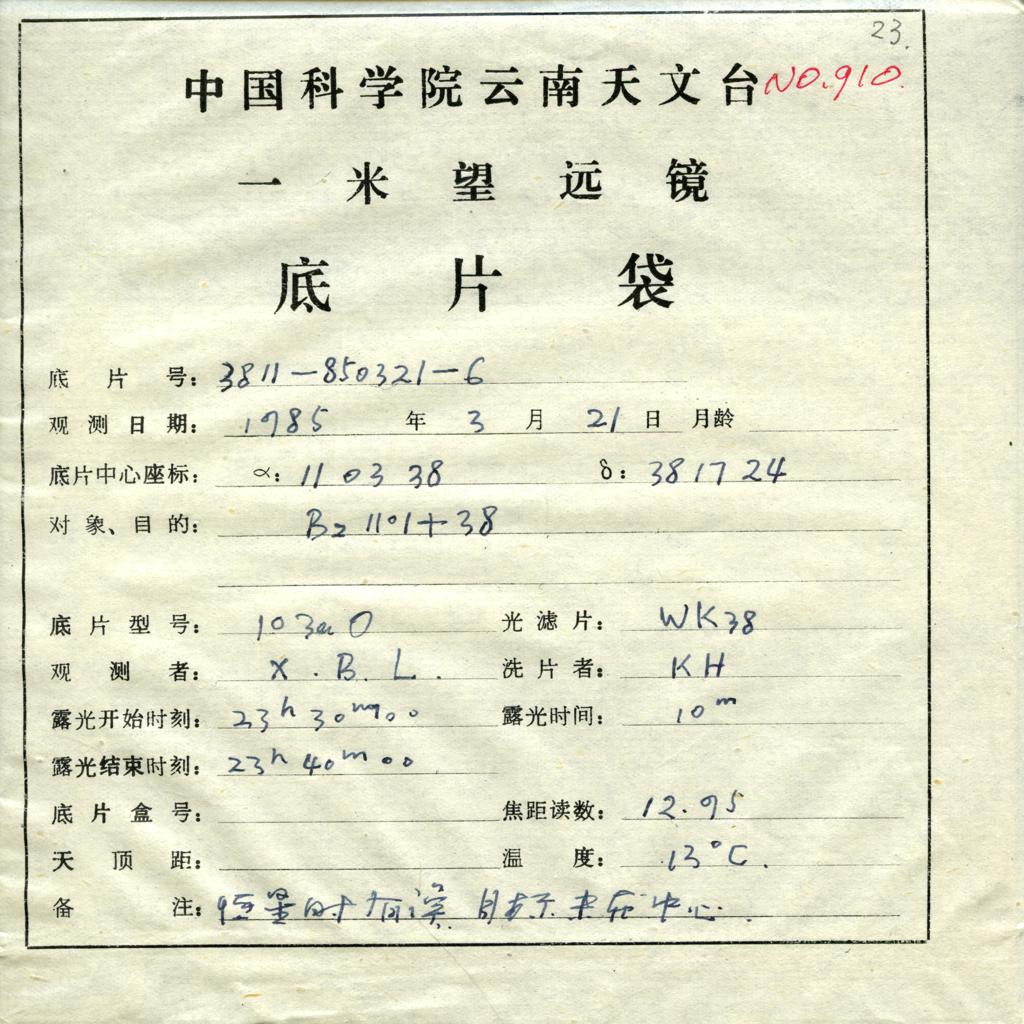 23.
中国科学院云南天文台 NO.910.
一米望远镜
底片袋
底片号: 3811-850321-6
观测日期: 1985 年 3 月 21 日 月龄
底片中心座标: α: 11 03 38 δ: 38 17 24
对象、目的: B2 1101+38
底片型号: 103aO 光滤片: WK38
观测者: X.B.L. 洗片者: KH
露光开始时刻: 23h 30m 00 露光时间: 10m
露光结束时刻: 23h 40m 00
底片盒号: 焦距读数: 12.95
天顶距: 温度: 13°C.
备注: 恒星时有误 目标未在中心.